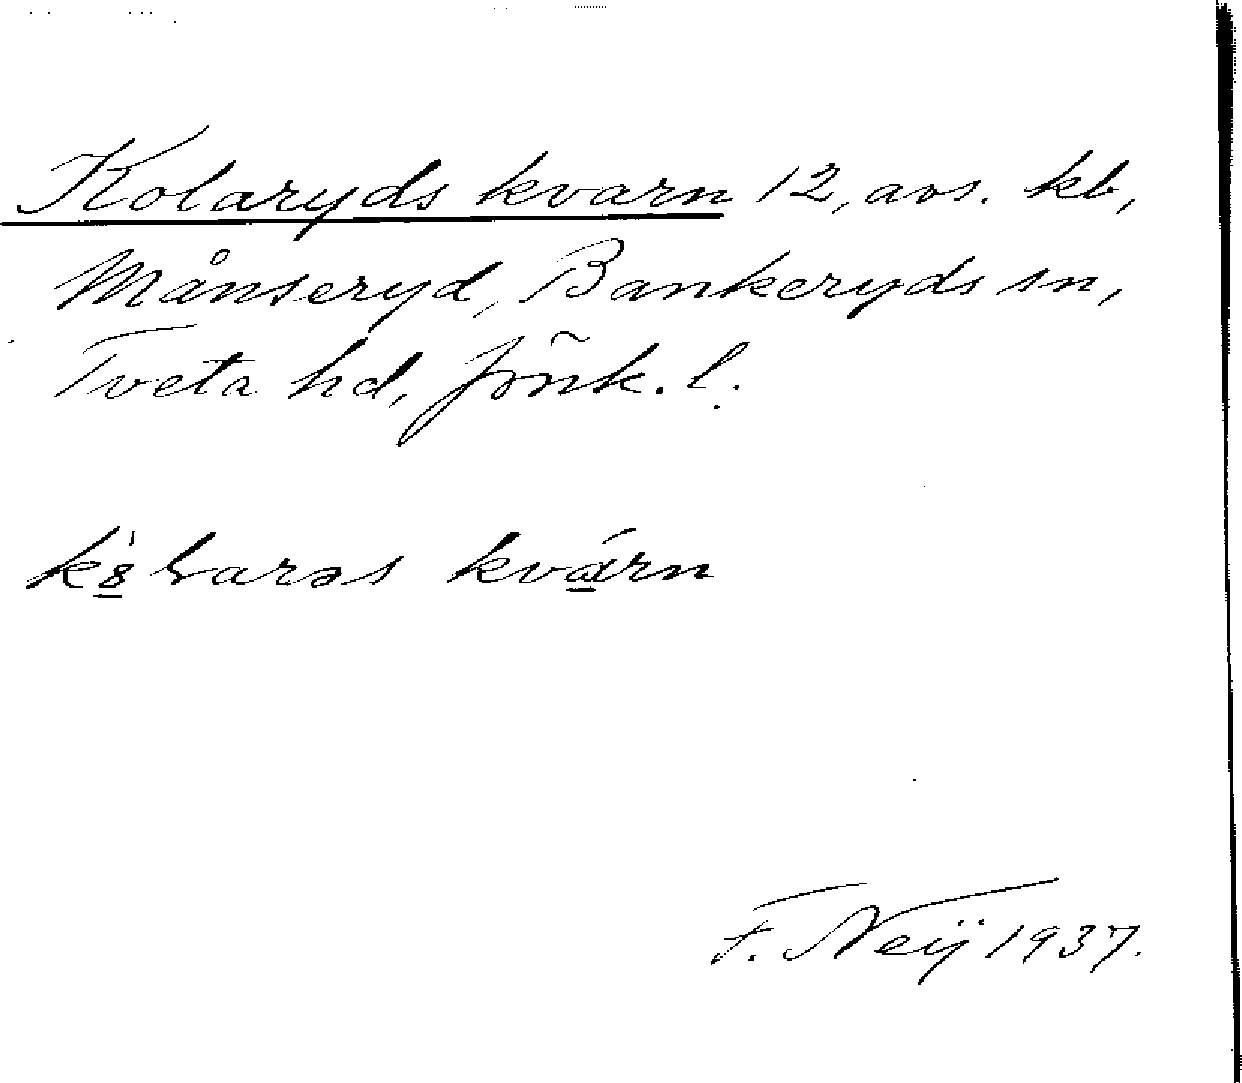 Kolaryds kvarn 12, avs. kb,
Månseryd, Bankeryds sn,
Tveta hd, Jönk. l.
kvarn
F. Neij 1937.